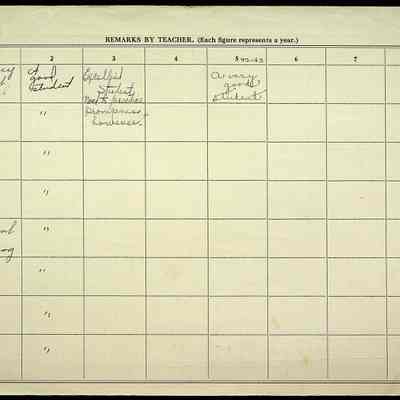 REMARKS BY TEACHER. (Each figure represents a year.)
2 3 4 5 42-43 6 7
A good student
Excellent student
Need to practice promptness, however.
A very good student
"
"
"
"
"
"
"